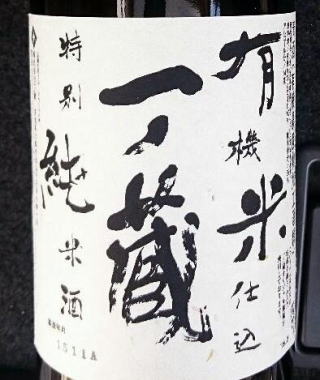 有機米仕込
一ノ蔵
特別純米酒
1511A